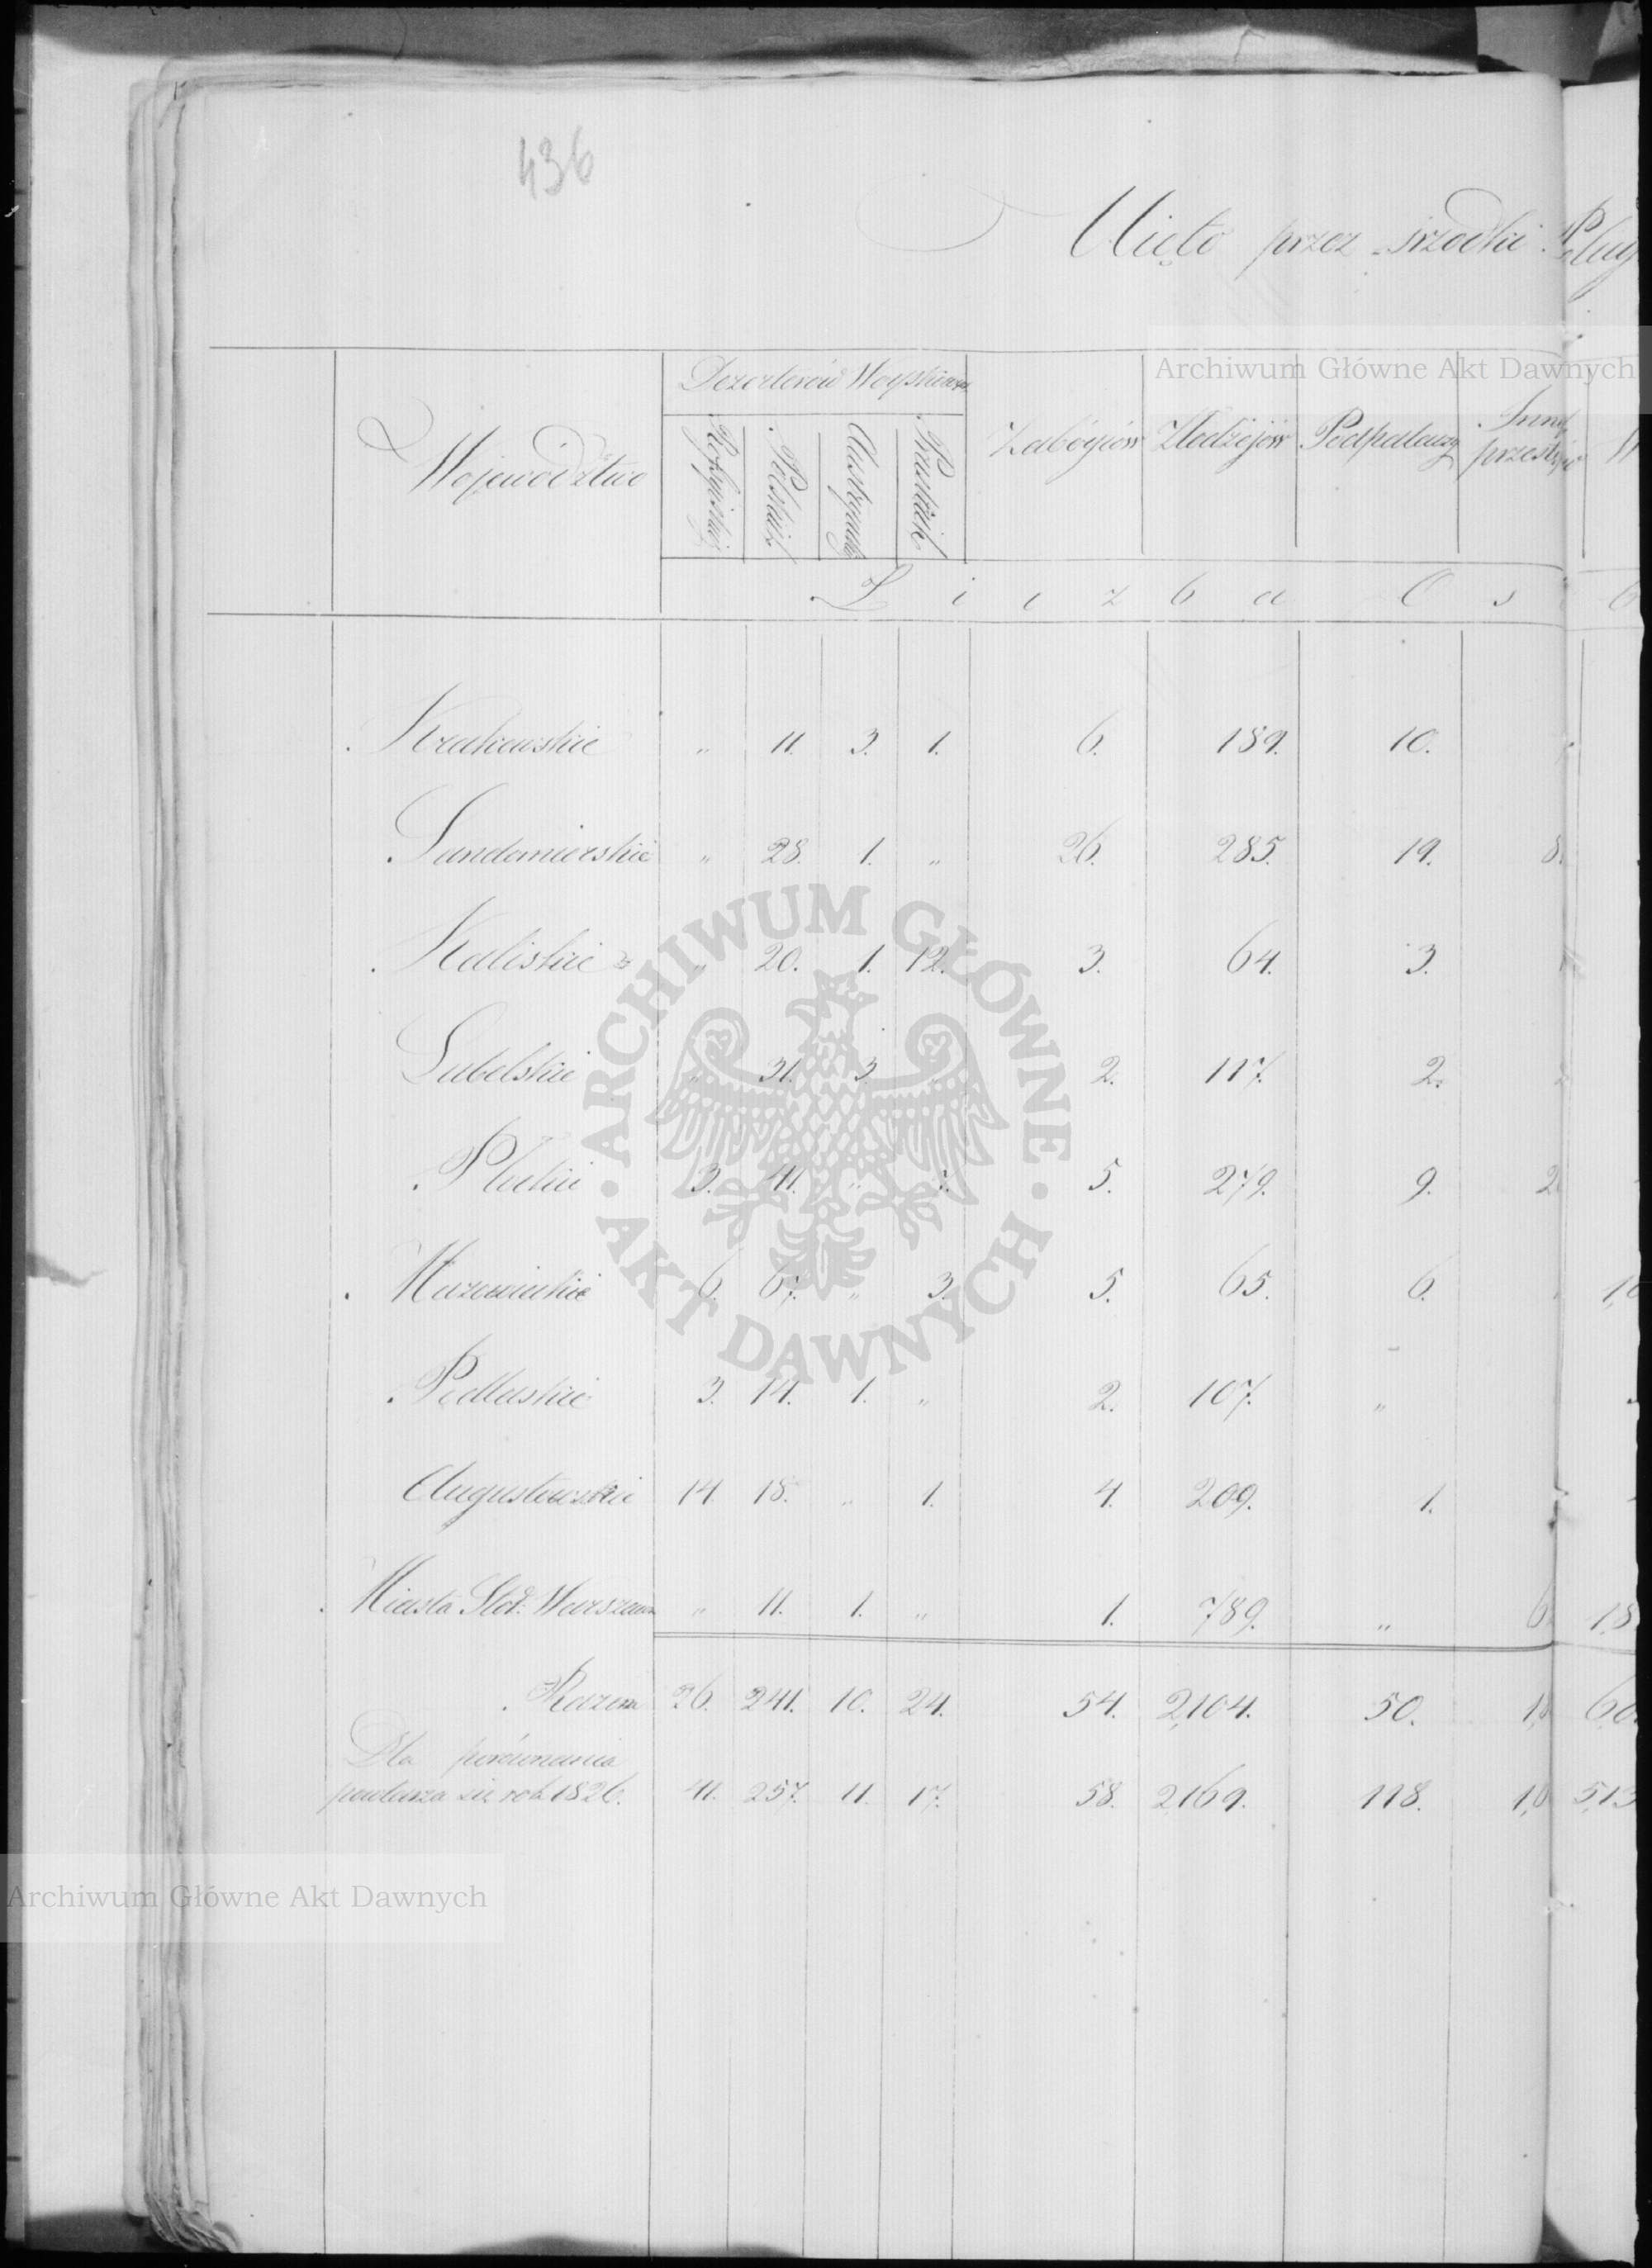 436
Ujęto przez srzodki
Archiwum Główne Akt Dawnych
Województwo
Dezerterów Woysk
Rossyiskich
Polskich
Austryack
Pruskich
Zabóyców
Złodziejów
Podpalaczy
Inny
przestęp
Liczba Os
Krakowskie „ 11. 3. 1. 6. 189. 10.
Sandomierskie „ 28. 1. „ 26. 285. 19. 8.
Kaliskie „ 20. 1. 12. 3. 64. 3.
Lubelskie „ 31. 3. „ 2. 117. 2.
Płockie 3. 41. „ 7. 5. 279. 9. 2
Mazowieckie 6. 67. „ 3. 5. 65. 6.
Podlaskie 3. 14. 1. „ 2. 107. „
Augustowskie 14. 18. „ 1. 4. 209. 1.
Miasto Stoł: Warszawa „ 11. 1. „ 1. 789. „ 6
Razem 26. 241. 10. 24. 54. 2,104. 50.
Dla porównania
powtarza się rok 1826. 41. 257. 11. 17. 58. 2,169. 118.
ARCHIWUM GŁÓWNE AKT DAWNYCH
Archiwum Główne Akt Dawnych